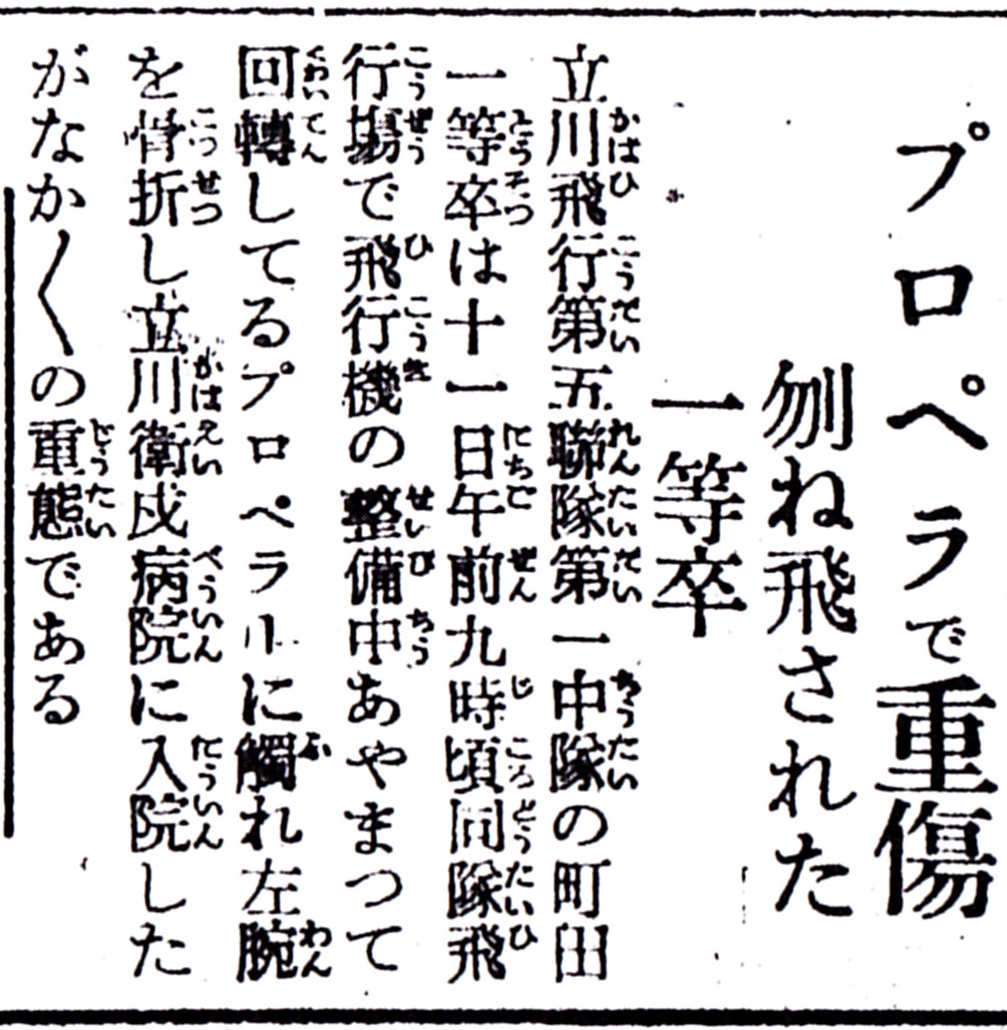 プロペラで重傷
刎ね飛された
一等卒
立川飛行第五聯隊第一中隊の町田
一等卒は十一日午前九時頃同隊飛
行場で飛行機の整備中あやまつて
回轉してるプロペラーに觸れ左腕
を骨折し立川衛戍病院に入院した
がなか〱の重態である